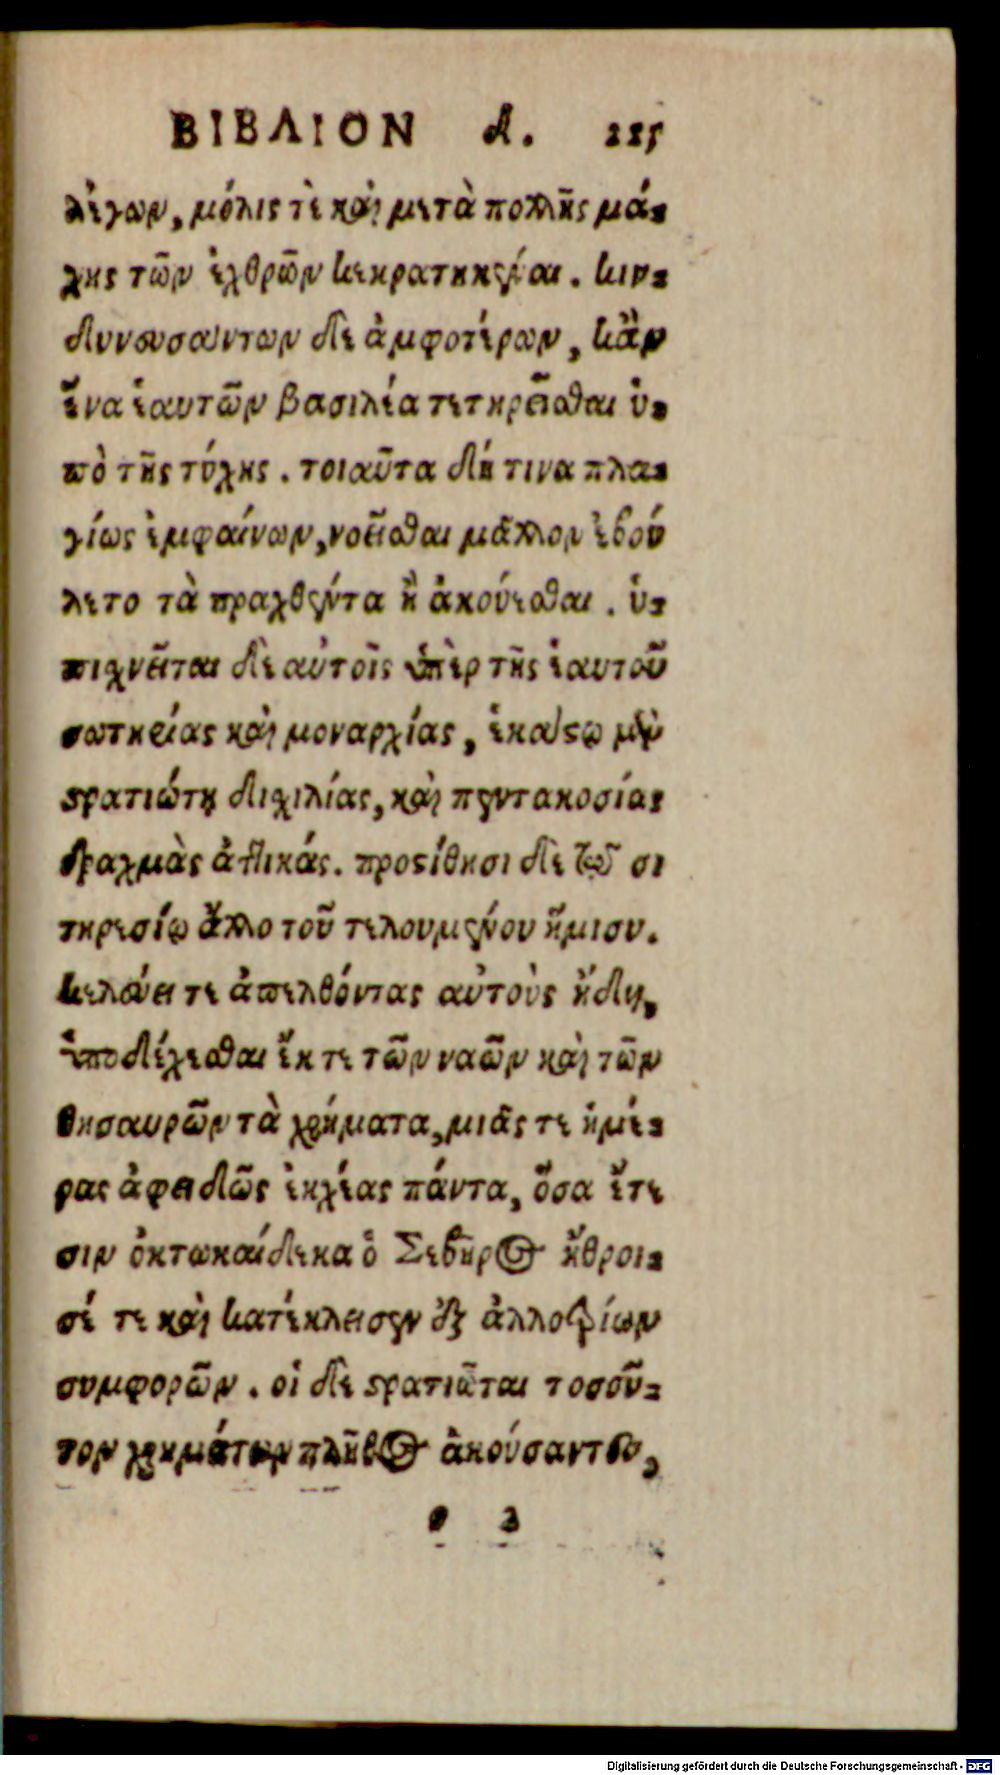 ΒΙΒΛΙΟΝ δ. 225
λέγων, μόλις τὲ καὶ μετὰ πολλῆς μά-
χης τῶν ἐχθρῶν κεκρατηκέναι. κιν-
δυνευσάντων δὲ ἀμφοτέρων, κἂν
ἕνα ἑαυτῶν βασιλέα τετηρεῖσθαι ὑ-
πὸ τῆς τύχης. τοιαῦτα δή τινα πλα-
γίως ἐμφαίνων, νοεῖσθαι μᾶλλον ἐβού
λετο τὰ πραχθέντα ἢ ἀκούεσθαι. ὑ-
πιχνεῖται δὲ αὐτοῖς ὑπὲρ τῆς ἑαυτοῦ
σωτηρίας καὶ μοναρχίας, ἑκάστῳ μὲν
στρατιώτῃ διχιλίας, καὶ πεντακοσίας
δραχμὰς ἀττικάς. προστίθησι δὲ τῷ σι
τηρεσίῳ ἄλλο τοῦ τελουμένου ἥμισυ.
κελεύει τε ἀπελθόντας αὐτοὺς ἤδη,
ὑποδέχεσθαι ἔκ τε τῶν ναῶν καὶ τῶν
θησαυρῶν τὰ χρήματα, μιᾶς τε ἡμέ-
ρας ἀφειδῶς ἐκχέας πάντα, ὅσα ἔτε
σιν ὀκτωκαίδεκα ὁ Σεβῆρος ἤθροι-
σέ τε καὶ κατέκλεισεν ἐξ ἀλλοτρίων
συμφορῶν. οἱ δὲ στρατιῶται τοσοῦ-
τον χρημάτων πλῆθος ἀκούσαντες,
ο 3
Digitalisierung gefördert durch die Deutsche Forschungsgemeinschaft - DFG